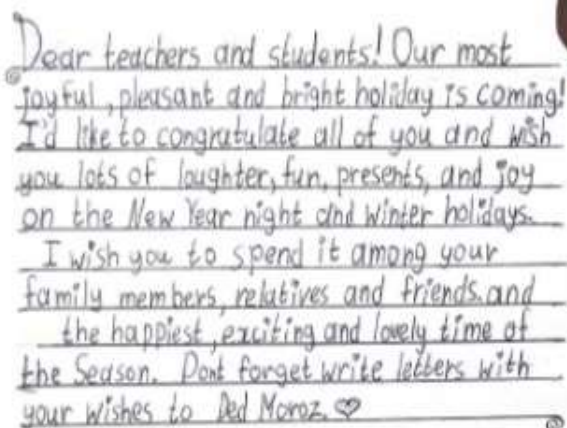 Dear teachers and students! Our most
joyful, pleasant and bright holiday is coming!
I'd like to congratulate all of you and wish
you lots of loughter, fun, presents, and joy
on the New Year night and winter holidays.
I wish you to spend it among your
family members, relatives and friends. and
the happiest, exciting and lovely time of
the Season. Dont forget write letters with
your wishes to Ded Moroz. ♡